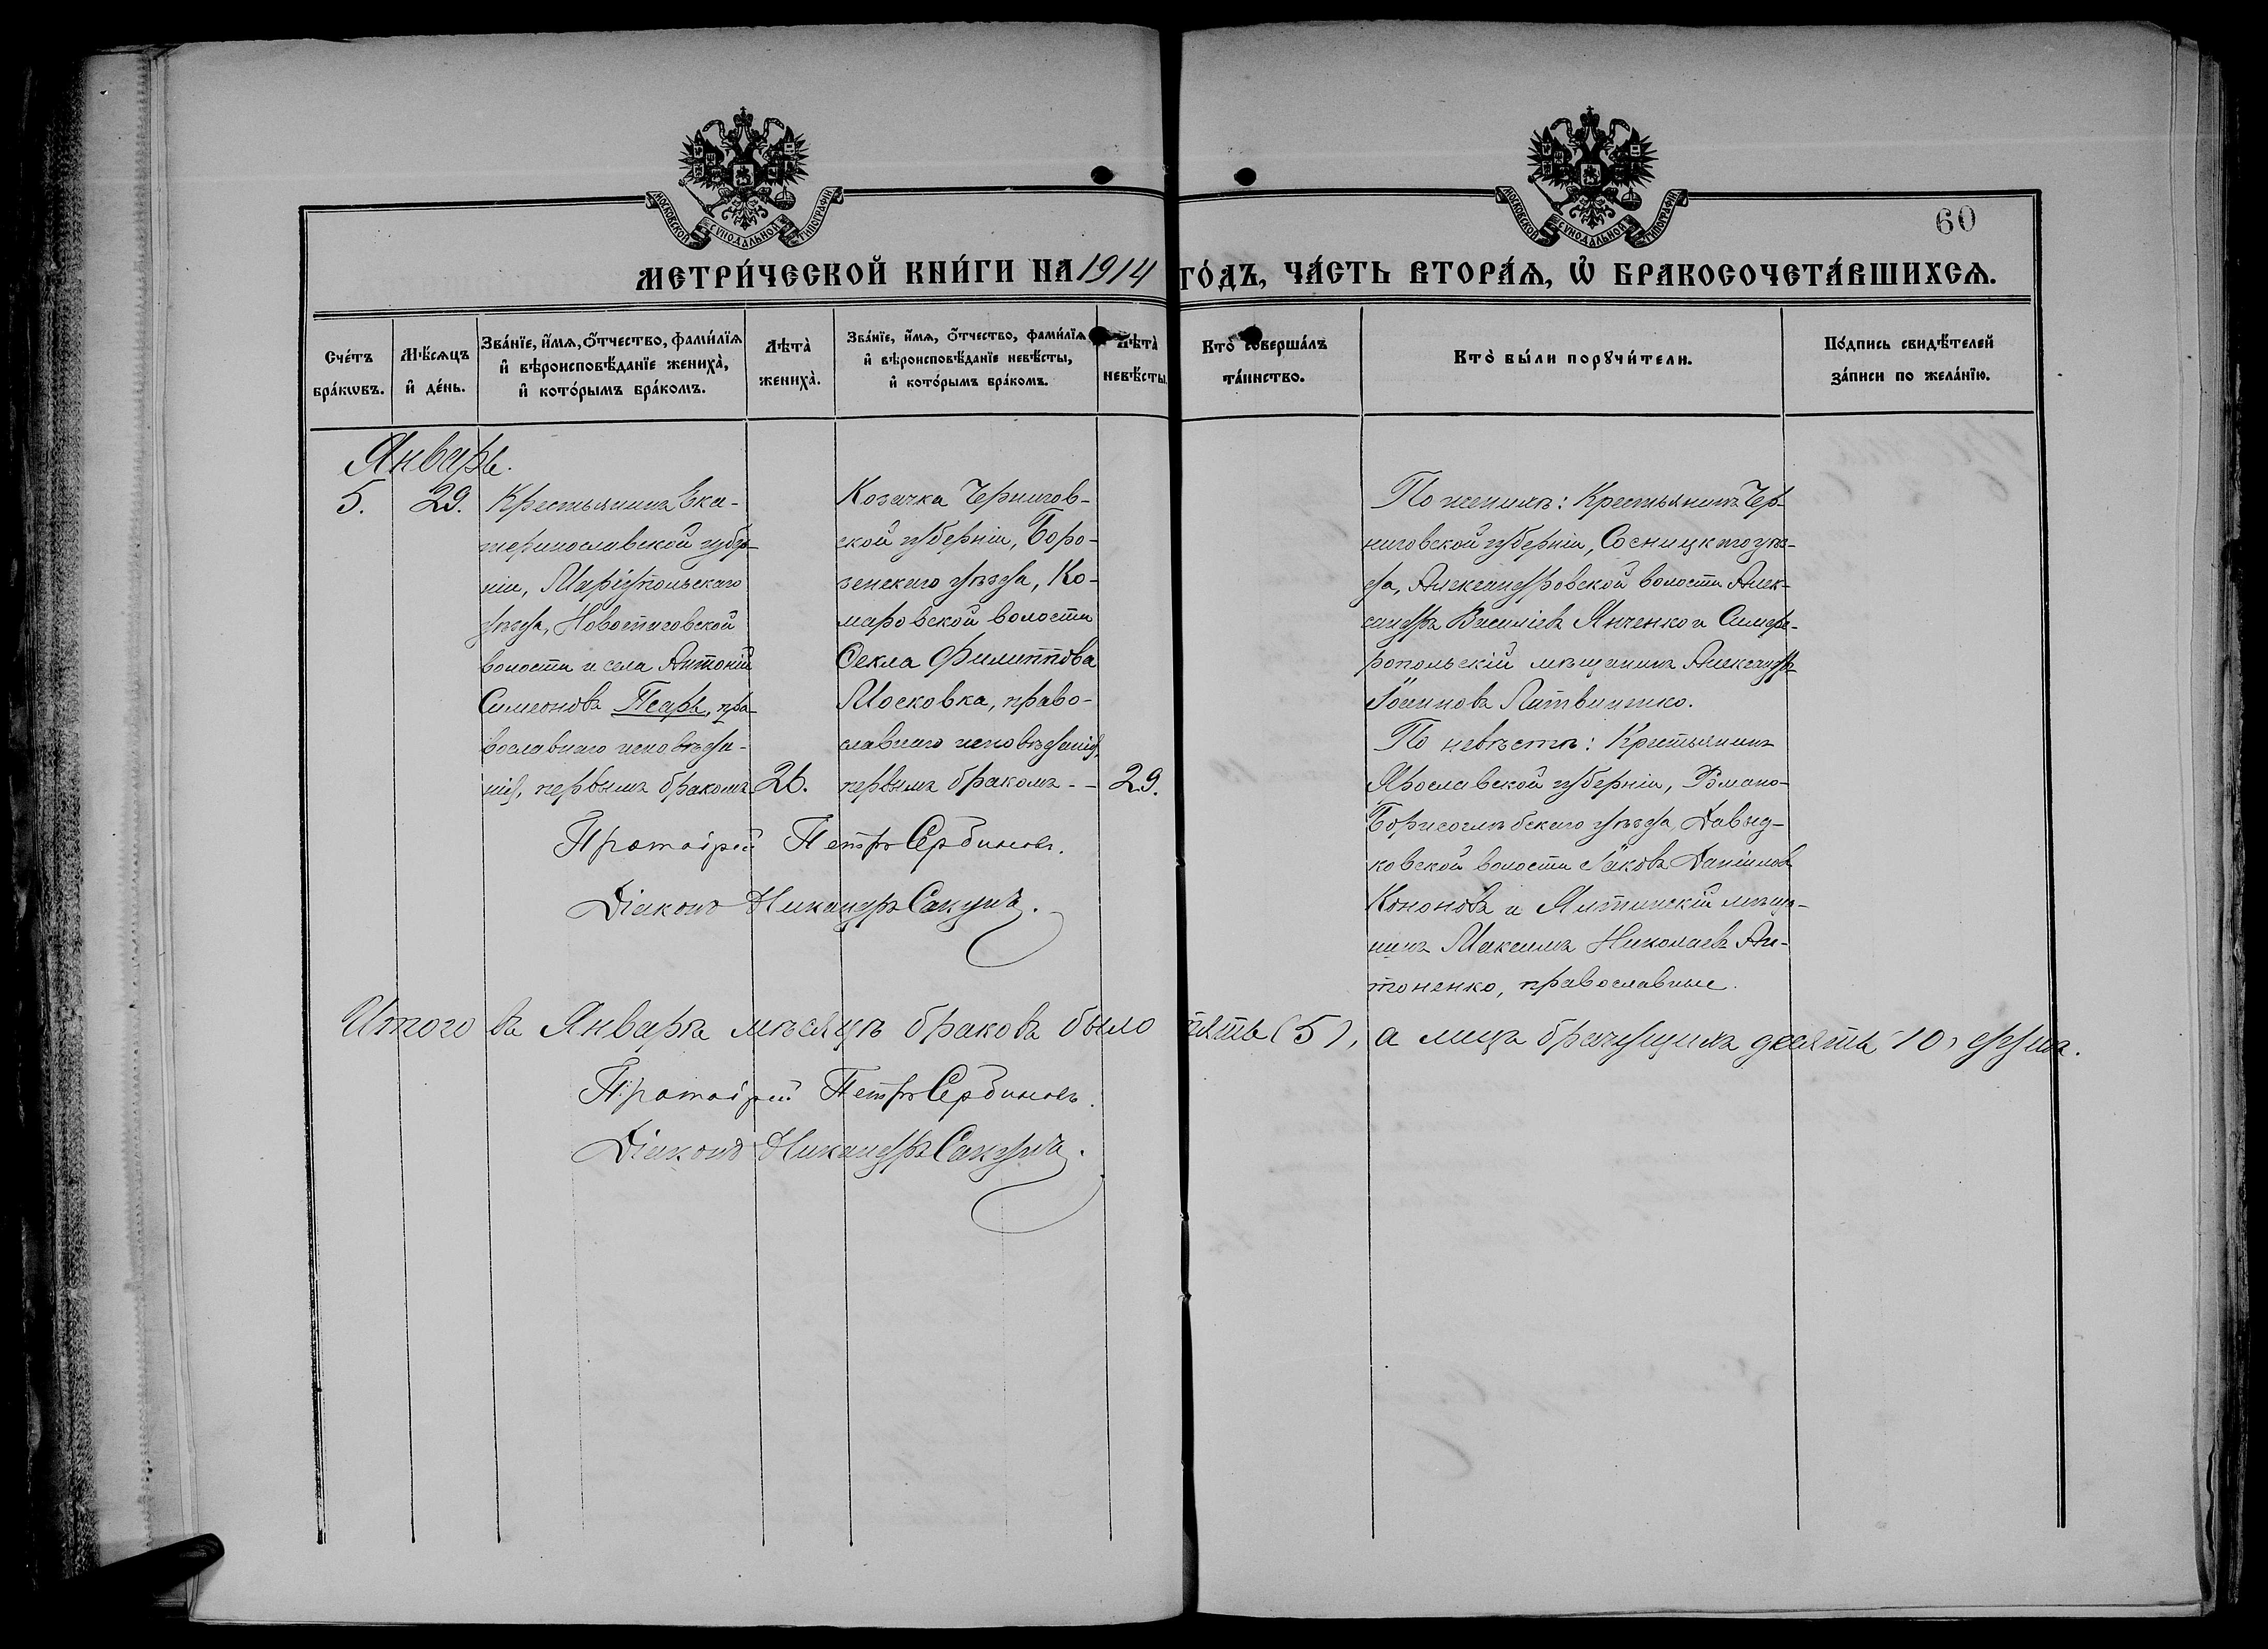 МОСКОВСКОЙ СУНОДАЛЬНОЙ ТИПОГРАФІИ
МОСКОВСКОЙ СУНОДАЛЬНОЙ ТИПОГРАФІИ
60
МЕТРИ́ЧЕСКОЙ КНИ́ГИ НА 1914 ГО́ДЪ, ЧА́СТЬ ВТОРА́Ѧ, Ѡ҆ БРАКОСОЧЕТА́ВШИХСѦ.
Сче́тъ
бра́кѡвъ.
Мѣ́сѧцъ
и҆ де́нь.
Зва́нїе, и҆́мѧ, ѻ҆́тчество, фами́лїѧ
и҆ вѣроисповѣ́данїе жениха̀,
и҆ кото́рымъ бра́комъ.
Лѣта̀
жениха̀.
Зва́нїе, и҆́мѧ, ѻ҆́тчество, фами́лїѧ
и҆ вѣроисповѣ́данїе невѣ́сты,
и҆ кото́рымъ бра́комъ.
Лѣта̀
невѣ́сты.
Кто̀ соверша́лъ
та́инство.
Кто̀ бы́ли порꙋчи́тели.
По́дпись свидѣ́телей
за́писи по жела́нїю.
Январь.
5.
29.
Крестьянинъ Ека-
теринославской губер-
ніи, Маріупольскаго
уѣзда, Новостиговской
волости и села Антоній
Симеоновъ Псарь, пра-
вославнаго исповѣда-
нія, первымъ бракомъ
26.
Козачка Чернигов-
ской губерніи, Боро-
зенскаго уѣзда, Ко-
маровской волости
Ѳекла Филиппова
Московка, право-
славнаго исповѣданія,
первымъ бракомъ - -
29.
По женихѣ: Крестьянинъ Чер-
ниговской губерніи, Сосницкаго уѣз-
да, Александровской волости Алек-
сандръ Василіевъ Янченко и Симфе-
ропольскій мѣщанинъ Александръ
Іосифовъ Литвиненко.
По невѣстѣ: Крестьянинъ
Ярославской губерніи, Романо-
Борисоглѣбскаго уѣзда, Давыд-
ковской волости Іаковъ Даніиловъ
Кононовъ и Ялтинскій мѣща-
нинъ Максимъ Николаевъ Ан-
тоненко, православные.
Протоіерей Петръ Сербиновъ.
Діаконъ Никандръ Сакунъ.
Итого въ Январѣ мѣсяцѣ браковъ было пять (5), а лицъ брачущихся десять 10, душъ.
Протоіерей Петръ Сербиновъ.
Діаконъ Никандръ Сакунъ.